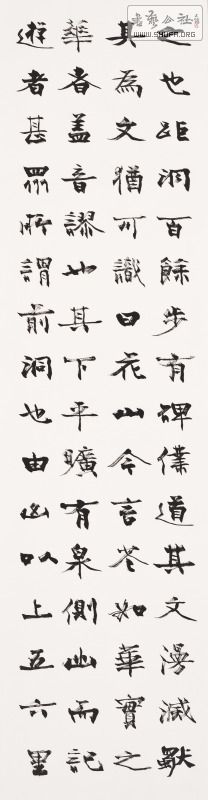 書藝公社
WWW.SHUFA.ORG
之也距洞百餘步有碑僕道其文漫滅
其為文猶可識曰花山今言花如華實之
華者盖音謬也其下平曠有泉側出而記
遊者甚眾所謂前洞也由山以上五六里